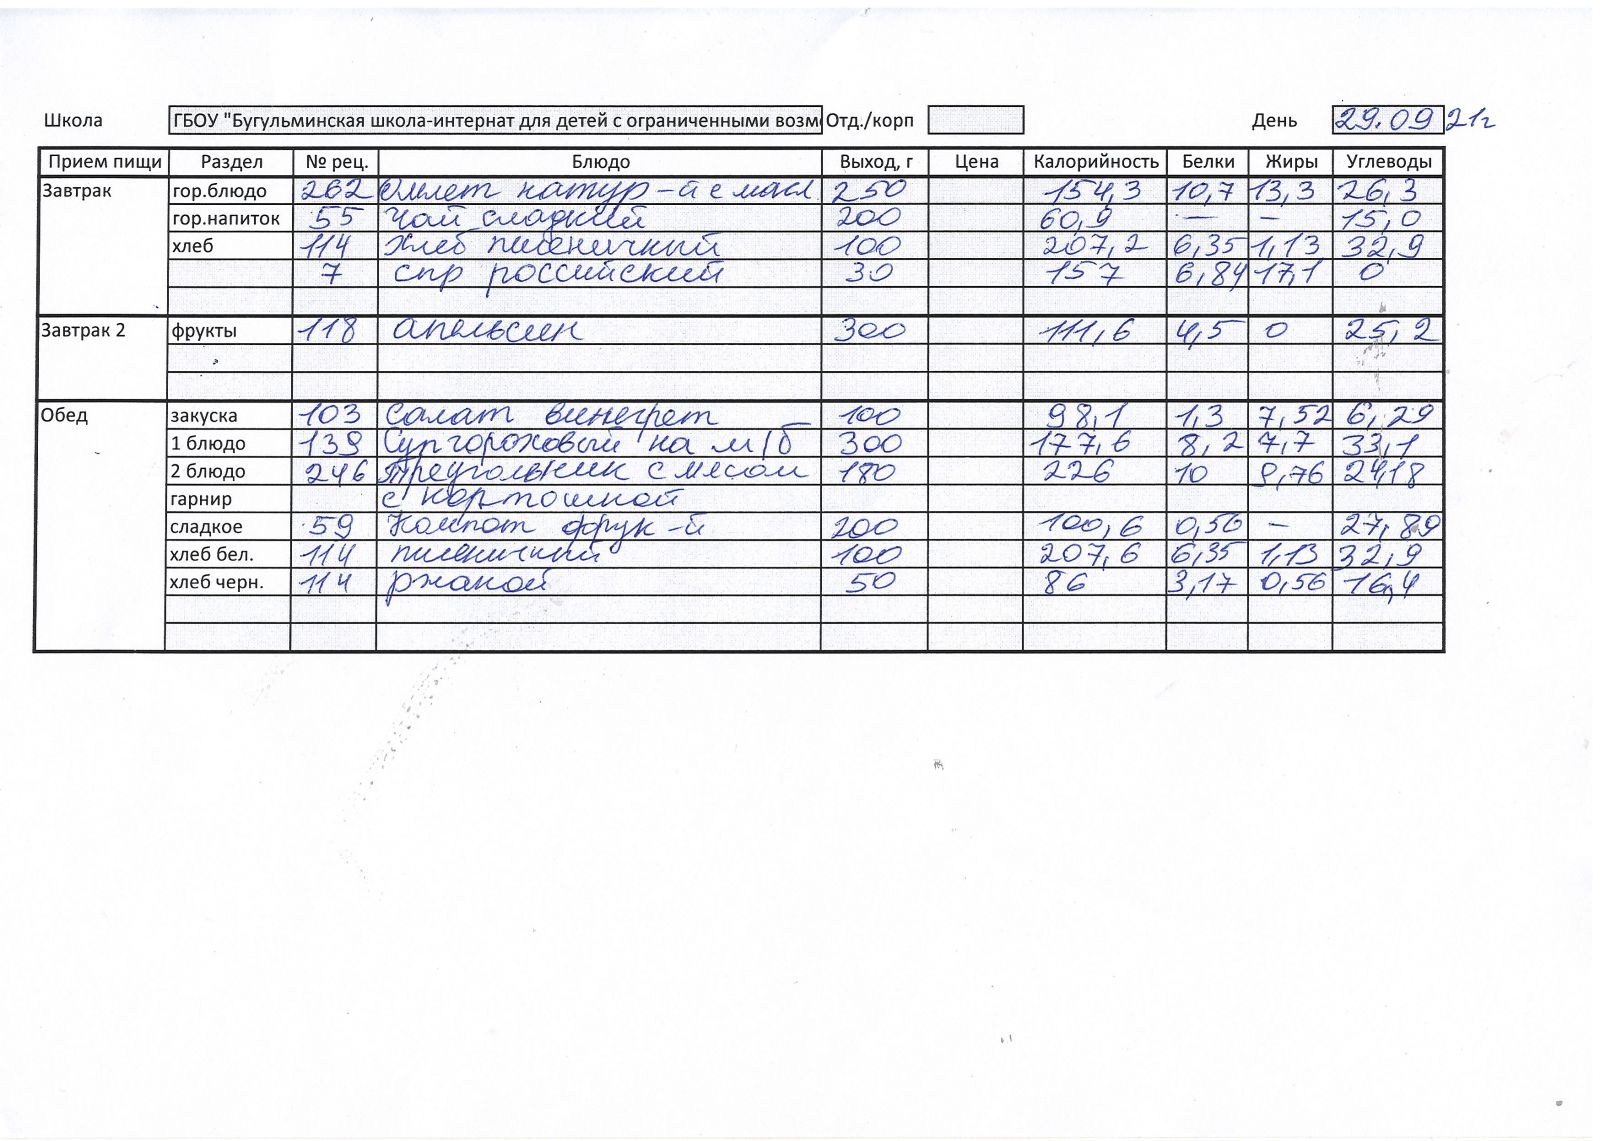 Школа ГБОУ "Бугульминская школа-интернат для детей с ограниченными возм Отд./корп День 29.09 21г
Прием пищи Раздел № рец. Блюдо Выход, г Цена Калорийность Белки Жиры Углеводы
Завтрак гор.блюдо 262 Омлет натур-й с масл 250 154,3 10,7 13,3 26,3
гор.напиток 55 Чай сладкий 200 60,9 — – 15,0
хлеб 114 Хлеб пшеничный 100 207,2 6,35 1,13 32,9
7 спр российский 30 157 6,84 17,1 0
Завтрак 2 фрукты 118 апельсин 300 111,6 4,5 0 25,2
Обед закуска 103 Салат винегрет 100 98,1 1,3 7,52 6,29
1 блюдо 139 Суп гороховый на м/б 300 177,6 8,2 7,7 33,1
2 блюдо 246 Треугольник с мясом 180 226 10 9,76 24,18
гарнир с картошкой
сладкое 59 Компот фрук-й 200 100,6 0,56 – 27,89
хлеб бел. 114 пшеничный 100 207,6 6,35 1,13 32,9
хлеб черн. 114 ржаной 50 86 3,17 0,56 16,4